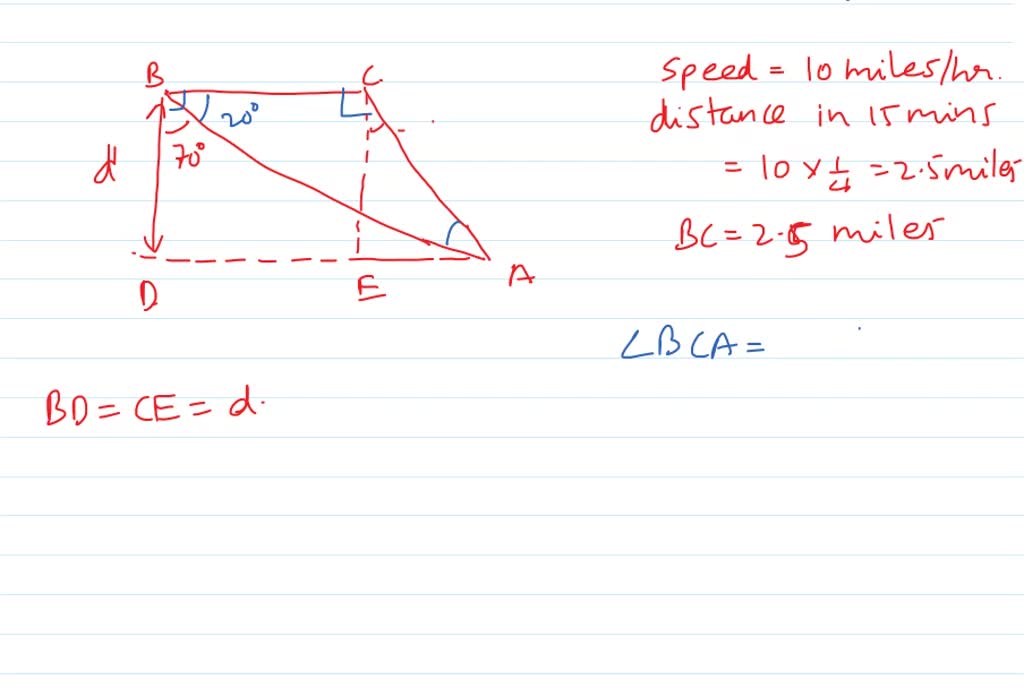 B C
20°
70°
d
D E A
Speed = 10 miles/hr.
distance in 15 mins
= 10 × 1/4 = 2.5 miles
BC = 2.5 miles
∠BCA =
BD = CE = d.